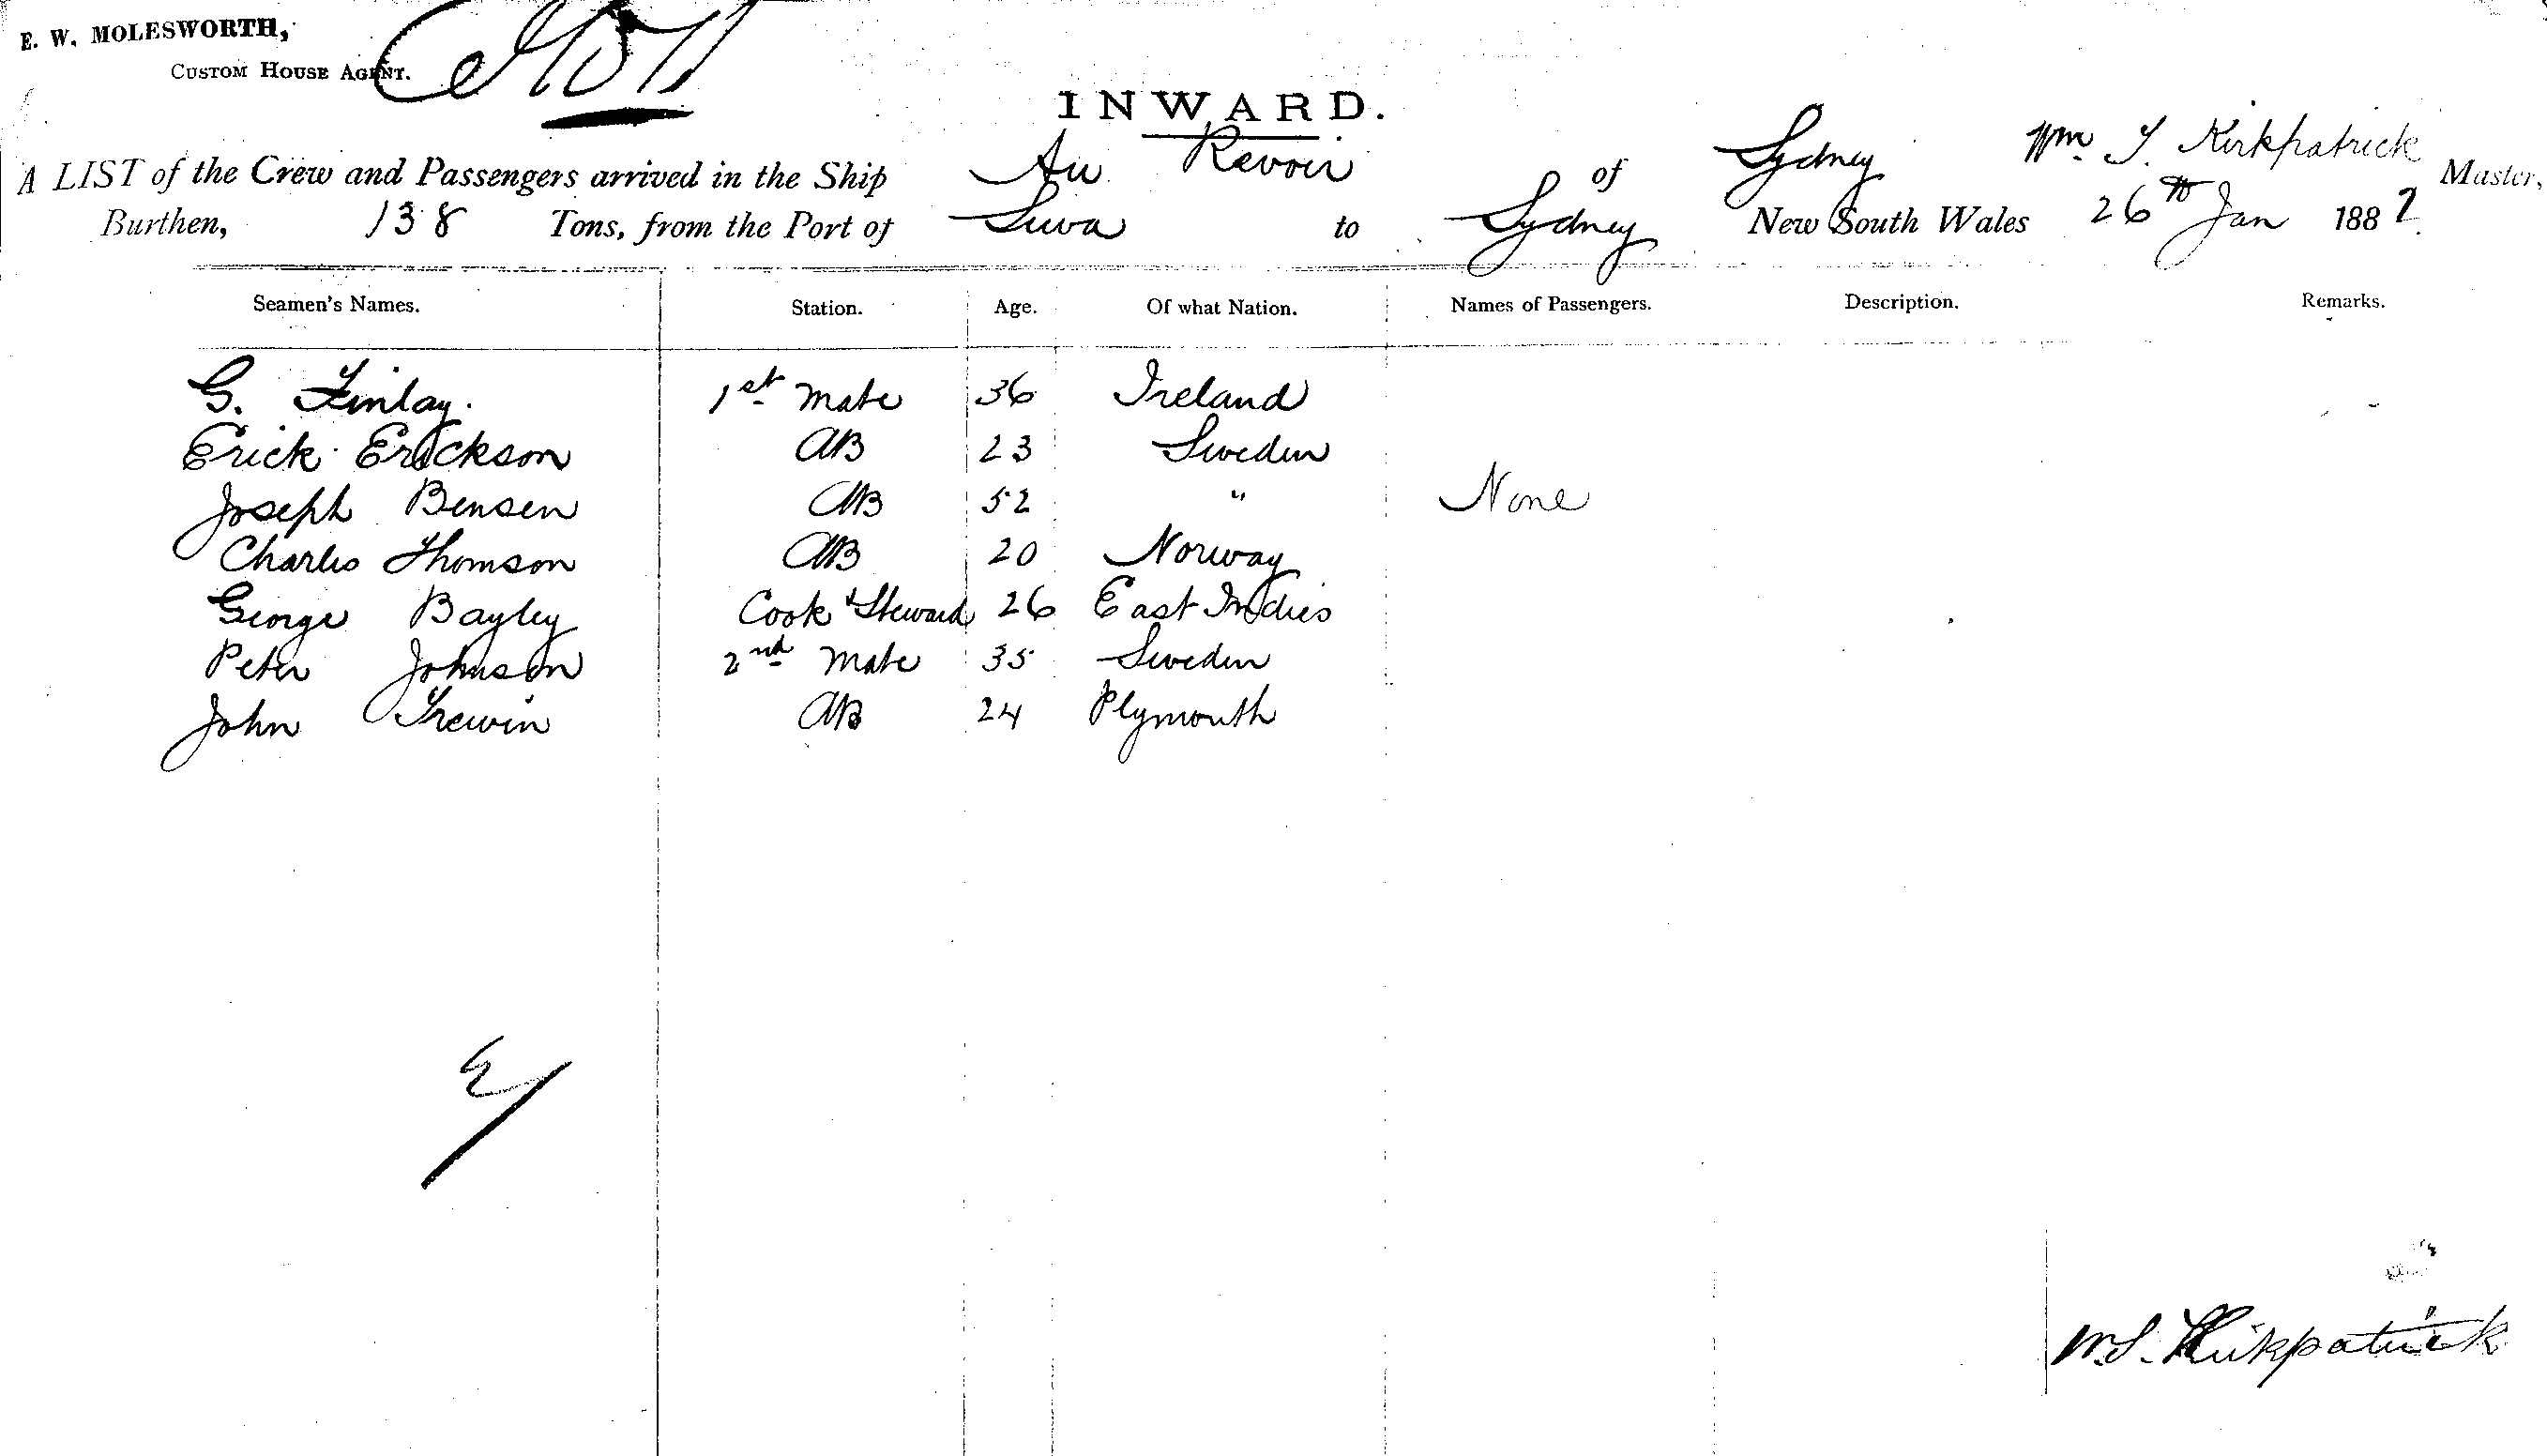 E. W. MOLESWORTH,
CUSTOM HOUSE AGENT.
INWARD.
A LIST of the Crew and Passengers arrived in the Ship Au Revoir of Sydney Wm. Kirkpatrick Master,
Burthen, 138 Tons, from the Port of Suva to Sydney New South Wales 26th Jan 1882
Seamen's Names. Station. Age. Of what Nation. Names of Passengers. Description. Remarks.
G. Finlay. 1st Mate 36 Ireland
Erick Erickson AB 23 Sweden
Joseph Bensen AB 52 " None
Charles Thomson AB 20 Norway
George Bayley Cook & Steward 26 East Indies
Peter Johnson 2nd Mate 35 Sweden
John Trewin AB 24 Plymouth
Kirkpatrick